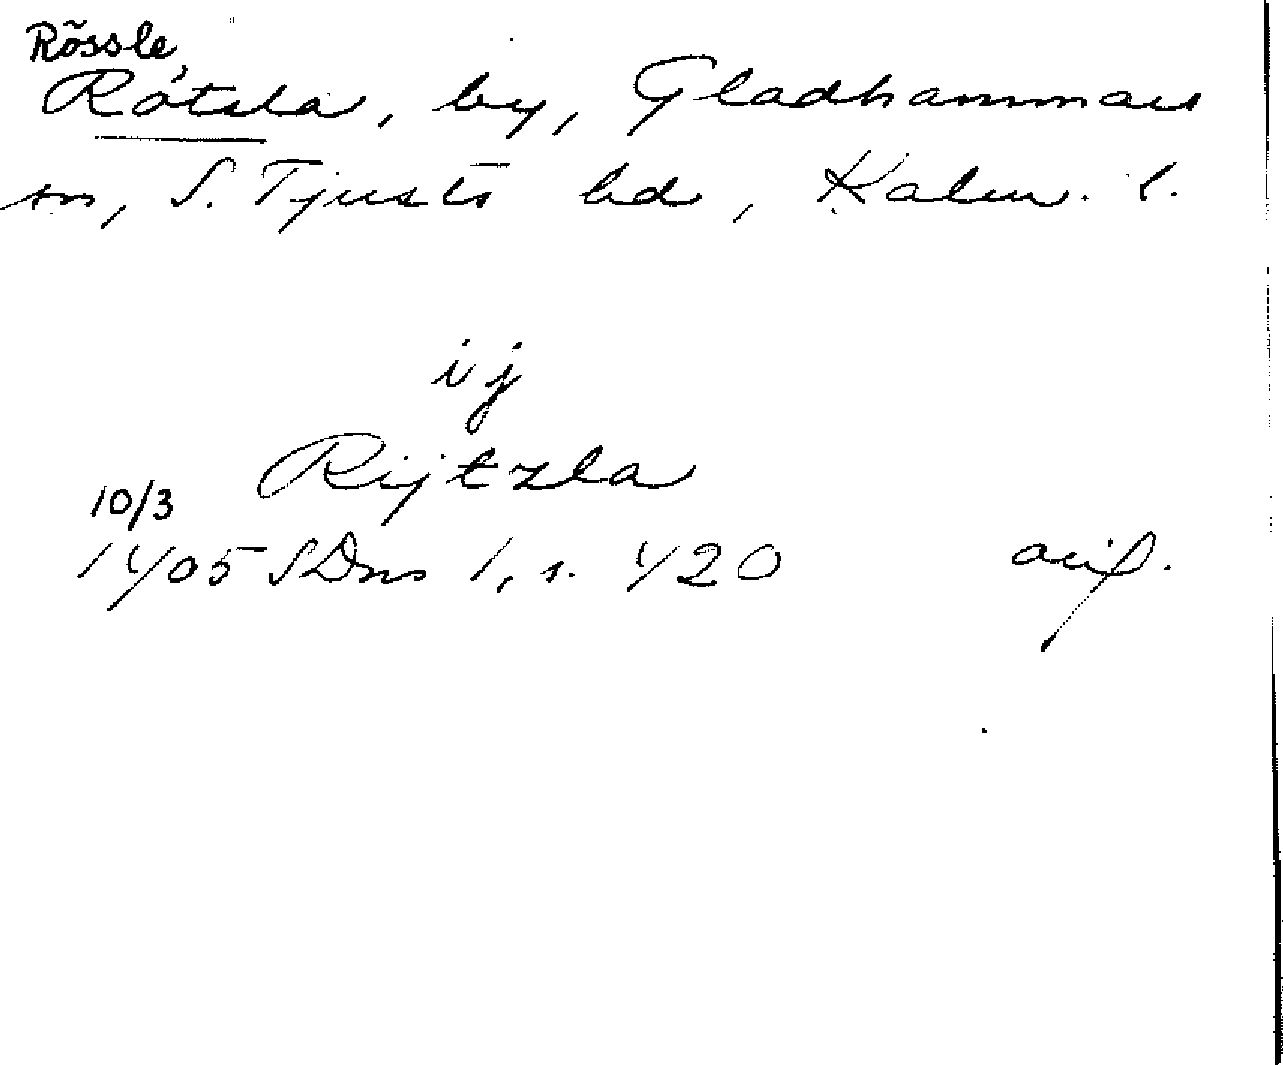 Rössle,
Rötsla, by, Gladhammars
sn, S. Tjusts hd, Kalm. l.
ij
Rijtzla
10/3
1405 SDns 1, s. 420 avs.